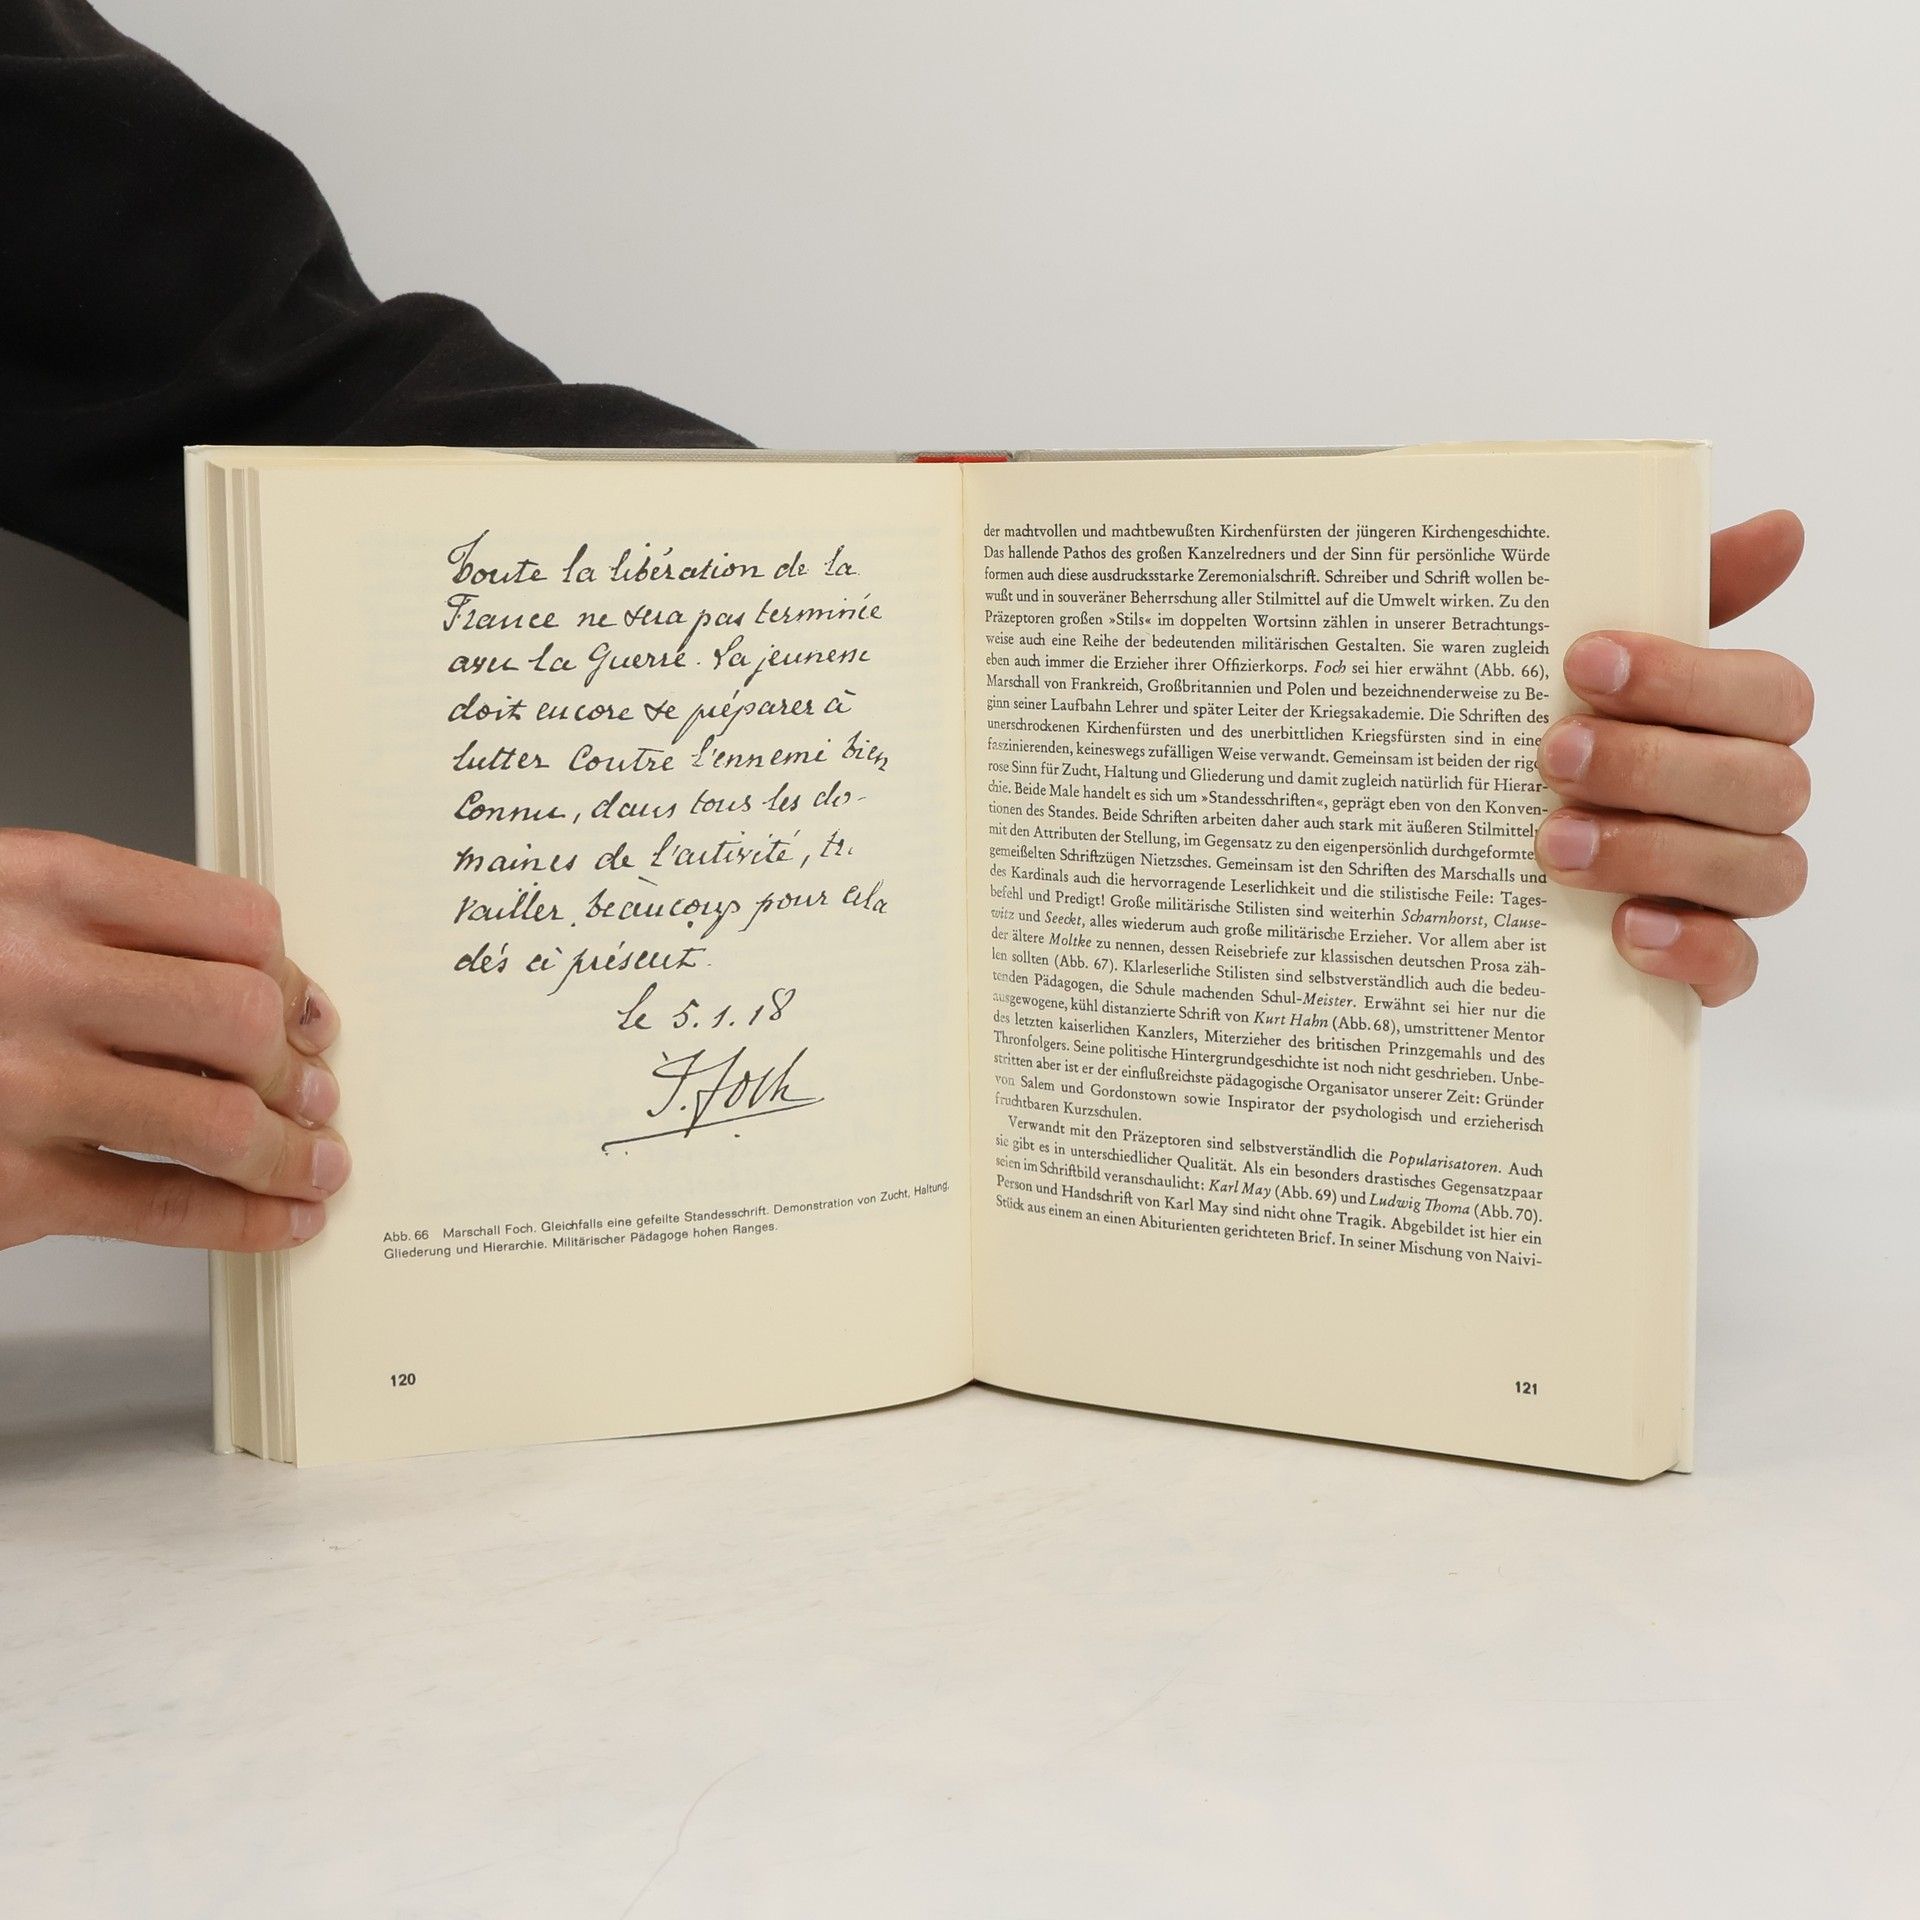 Toute la libération de la
France ne sera pas terminée
avec la Guerre. La jeunesse
doit encore se préparer à
lutter contre l'ennemi bien
Connu, dans tous les do-
maines de l'activité, tra
vailler beaucoup pour cela
dés à présent.
le 5.1.18
F. Foch
Abb. 66 Marschall Foch. Gleichfalls eine gefeilte Standesschrift. Demonstration von Zucht, Haltung,
Gliederung und Hierarchie. Militärischer Pädagoge hohen Ranges.
120
der machtvollen und machtbewußten Kirchenfürsten der jüngeren Kirchengeschichte.
Das hallende Pathos des großen Kanzelredners und der Sinn für persönliche Würde
formen auch diese ausdrucksstarke Zeremonialschrift. Schreiber und Schrift wollen be-
wußt und in souveräner Beherrschung aller Stilmittel auf die Umwelt wirken. Zu den
Präzeptoren großen »Stils« im doppelten Wortsinn zählen in unserer Betrachtungs-
weise auch eine Reihe der bedeutenden militärischen Gestalten. Sie waren zugleich
eben auch immer die Erzieher ihrer Offizierkorps. Foch sei hier erwähnt (Abb. 66),
Marschall von Frankreich, Großbritannien und Polen und bezeichnenderweise zu Be-
ginn seiner Laufbahn Lehrer und später Leiter der Kriegsakademie. Die Schriften des
unerschrockenen Kirchenfürsten und des unerbittlichen Kriegsfürsten sind in eine
faszinierenden, keineswegs zufälligen Weise verwandt. Gemeinsam ist beiden der rigo
rose Sinn für Zucht, Haltung und Gliederung und damit zugleich natürlich für Hierar-
chie. Beide Male handelt es sich um »Standesschriften«, geprägt eben von den Konven-
tionen des Standes. Beide Schriften arbeiten daher auch stark mit äußeren Stilmitteln
mit den Attributen der Stellung, im Gegensatz zu den eigenpersönlich durchgeformte
gemeißelten Schriftzügen Nietzsches. Gemeinsam ist den Schriften des Marschalls und
des Kardinals auch die hervorragende Leserlichkeit und die stilistische Feile: Tages-
befehl und Predigt! Große militärische Stilisten sind weiterhin Scharnhorst, Clause-
witz und Seeckt, alles wiederum auch große militärische Erzieher. Vor allem aber ist
der ältere Moltke zu nennen, dessen Reisebriefe zur klassischen deutschen Prosa zäh-
len sollten (Abb. 67). Klarleserliche Stilisten sind selbstverständlich auch die bedeu-
tenden Pädagogen, die Schule machenden Schul-Meister. Erwähnt sei hier nur die
ausgewogene, kühl distanzierte Schrift von Kurt Hahn (Abb. 68), umstrittener Mentor
des letzten kaiserlichen Kanzlers, Miterzieher des britischen Prinzgemahls und des
Thronfolgers. Seine politische Hintergrundgeschichte ist noch nicht geschrieben. Unbe-
stritten aber ist er der einflußreichste pädagogische Organisator unserer Zeit: Gründer
von Salem und Gordonstown sowie Inspirator der psychologisch und erzieherisch
fruchtbaren Kurzschulen.
Verwandt mit den Präzeptoren sind selbstverständlich die Popularisatoren. Auch
sie gibt es in unterschiedlicher Qualität. Als ein besonders drastisches Gegensatzpaar
seien im Schriftbild veranschaulicht: Karl May (Abb. 69) und Ludwig Thoma (Abb. 70).
Person und Handschrift von Karl May sind nicht ohne Tragik. Abgebildet ist hier ein
Stück aus einem an einen Abiturienten gerichteten Brief. In seiner Mischung von Naivi-
121